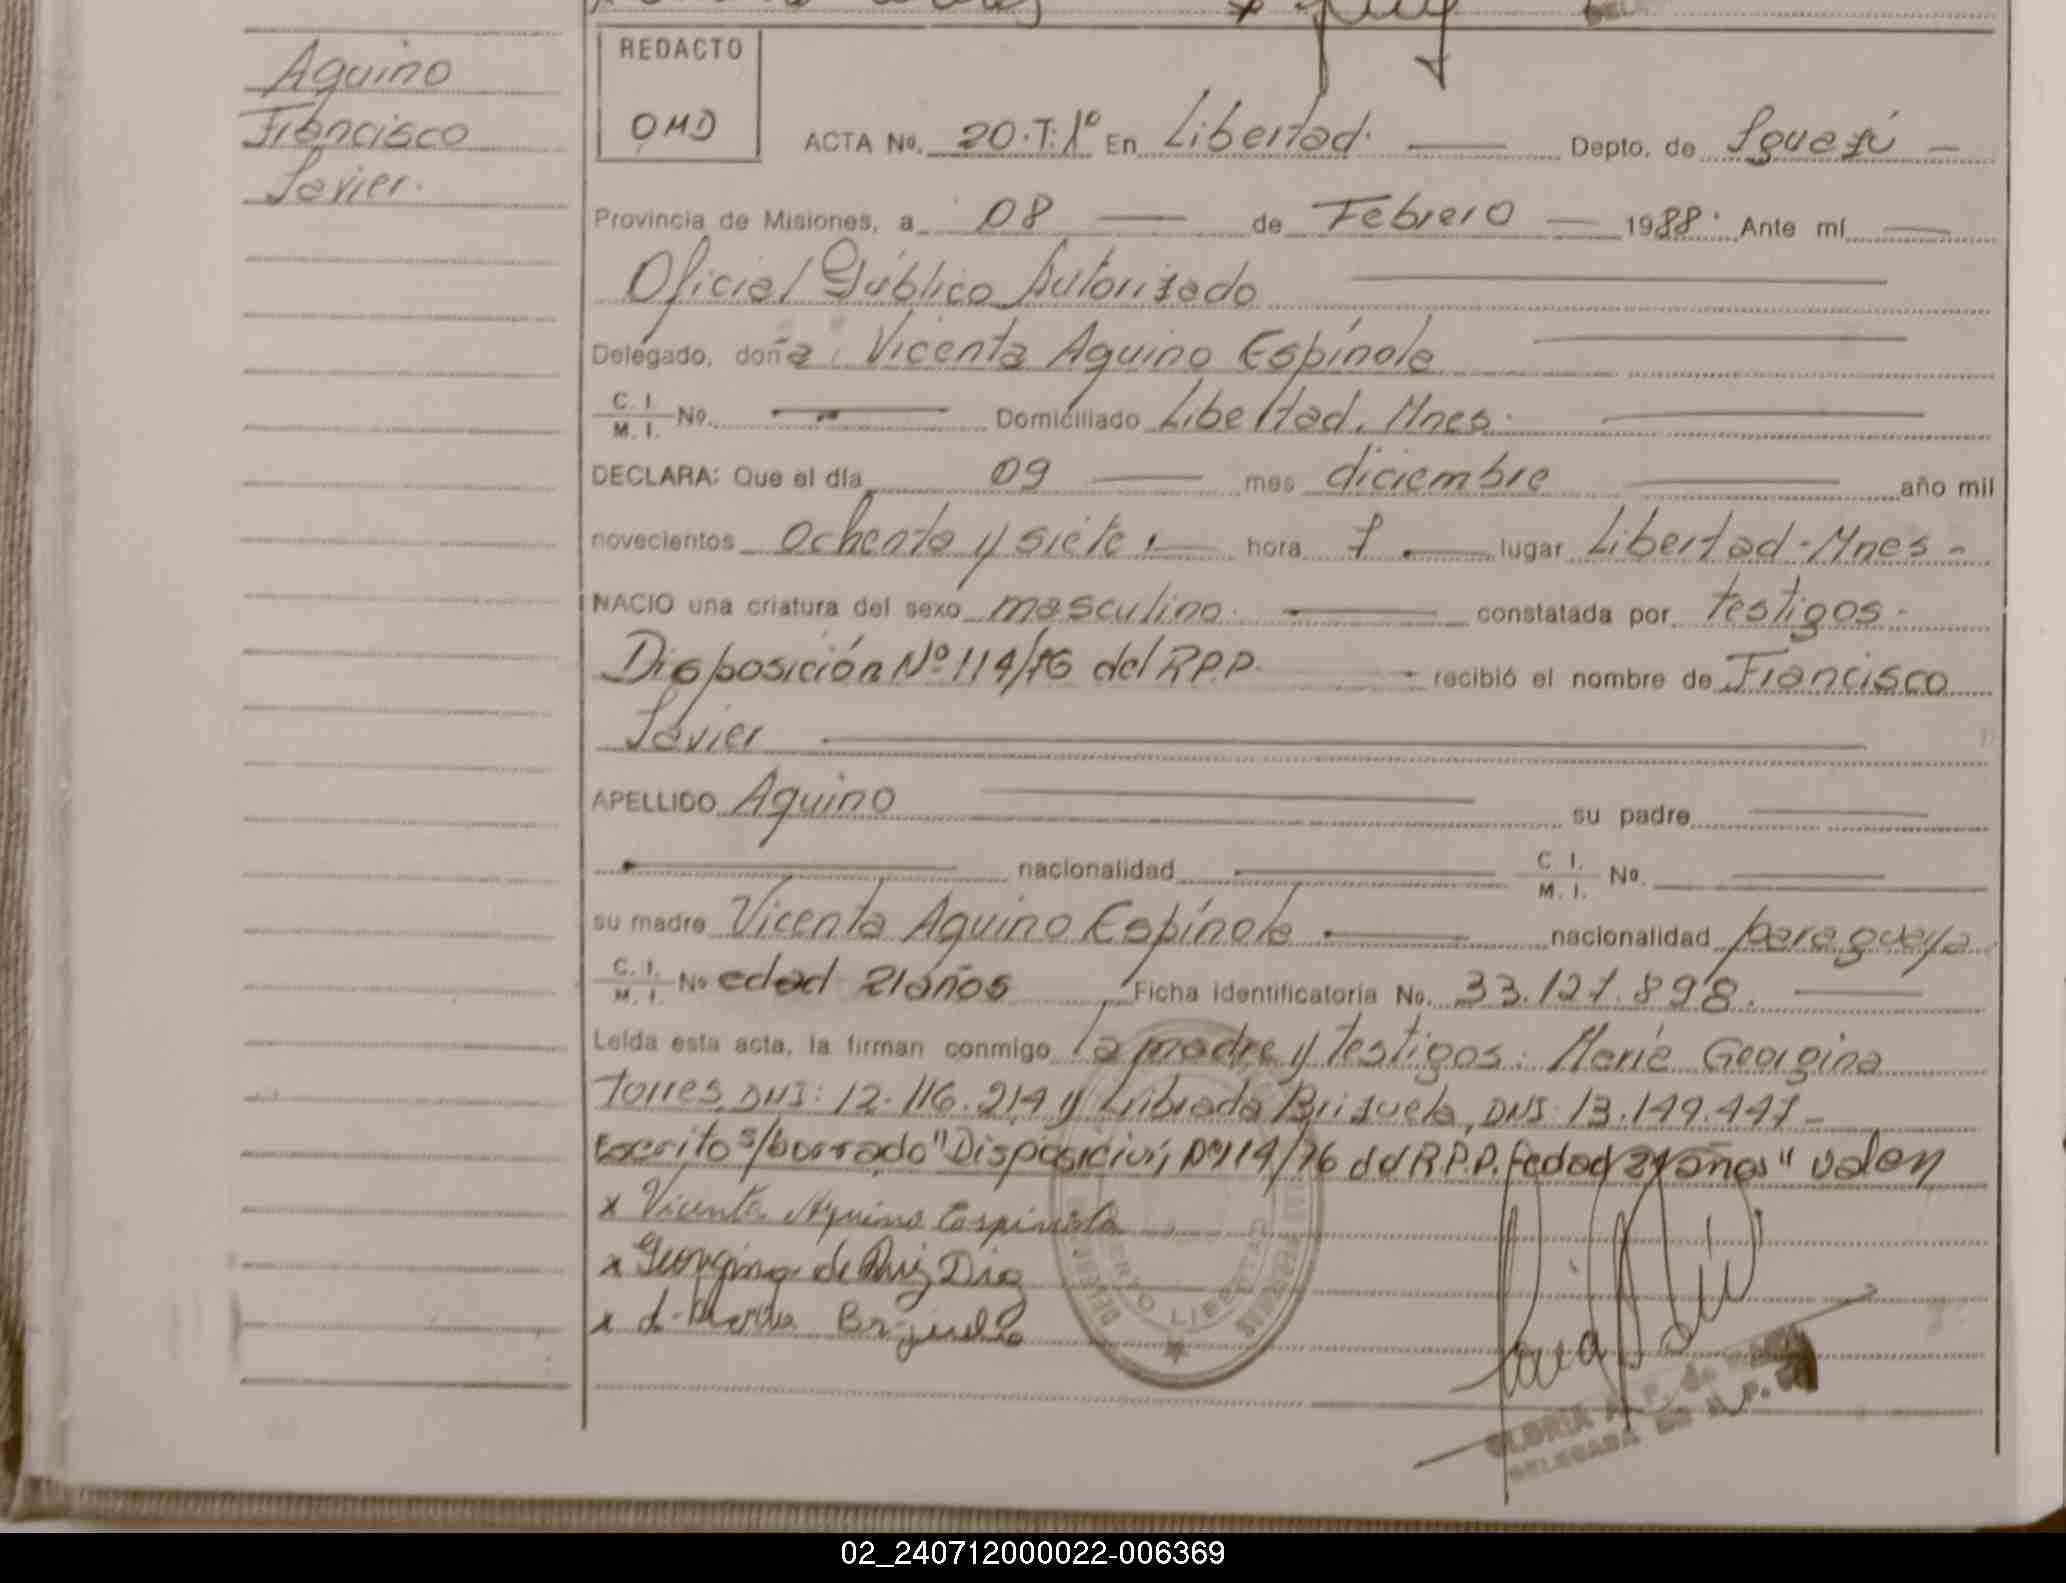 Aquino
Francisco
Javier.
REDACTO
OMD
ACTA No. 20.T:1º En Libertad. Depto. de Iguazú
Provincia de Misiones, a 08 de Febrero 1988. Ante mí
Oficial Público Autorizado
Delegado, doña Vicenta Aquino Espínola
C. I. / M. I. No. Domiciliado Libertad. Mnes.
DECLARA: Que el día 09 mes diciembre año mil
novecientos ochenta y siete, hora 7. lugar Libertad-Mnes-
NACIO una criatura del sexo masculino. constatada por testigos-
Disposición Nº 114/76 del R.P.P. recibió el nombre de Francisco
Javier
APELLIDO Aquino su padre
nacionalidad C. I. / M. I. No.
su madre Vicenta Aquino Espínola nacionalidad paraguaya
C. I. / M. I. No edad 21 años Ficha identificatoria No. 33.127.898.
Leída esta acta, la firman conmigo la madre y testigos: María Georgina
Torres, DNI: 12.116.214 y Librada Brizuela, DNI: 13.149.447-
Escrito s/borrado "Disposición Nº114/76 del R.P.P. edad 21 años" valen
x Vicenta Aquino Espinola
x Georgina de Ruiz Diaz
x Brizuela
LIBERTAD
GLORIA A. P. de
DELEGADA
02_240712000022-006369